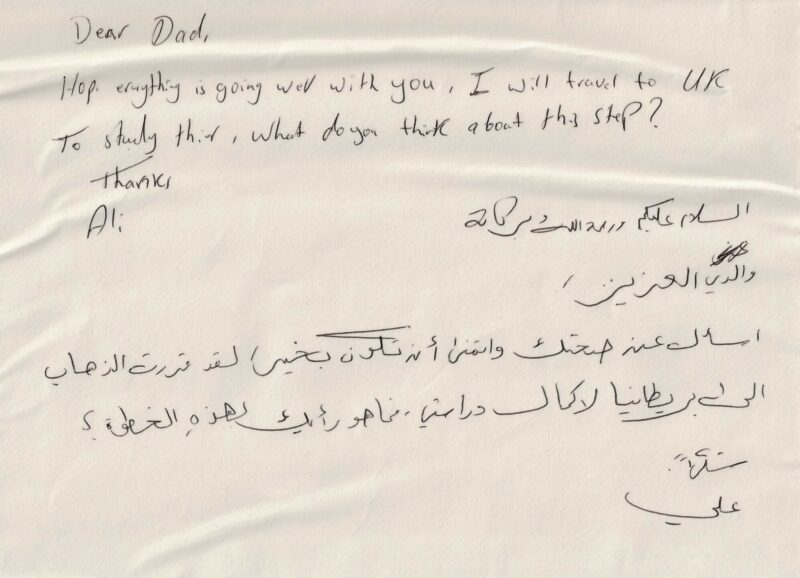 Dear Dad,
Hop. erything is going well with you, I will travel to UK
To study thir, what do you think about this step?
Thanks
Ali
السلام عليكم ورحمة الله وبركاته
والدي العزيز،
اسأل عن صحتك واتمنى أن تكون بخير، لقد قررت الذهاب
الى بريطانيا لاكمال دراستي، فما هو رأيك لهذه الخطوة؟
شكراً.
علي